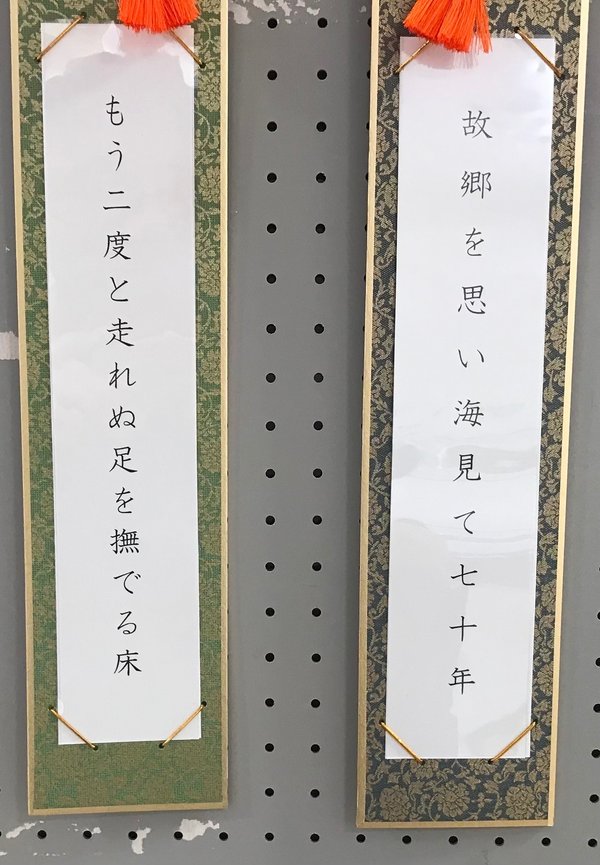 故郷を思い海見て七十年
もう二度と走れぬ足を撫でる床